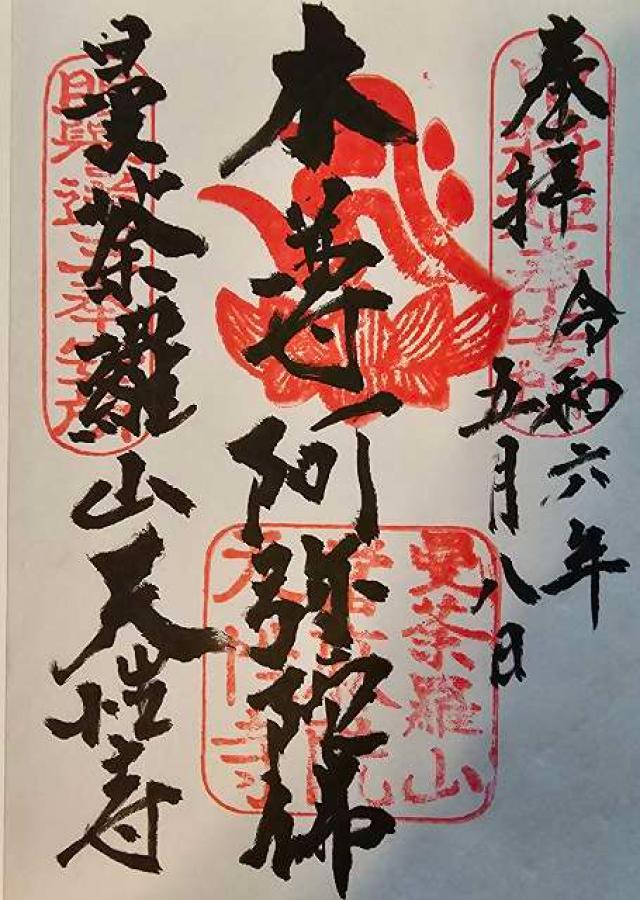 奉拝
令和六年
五月八日
本尊 阿弥陀佛
曼荼羅山 天性寺
曼荼羅山
天性寺